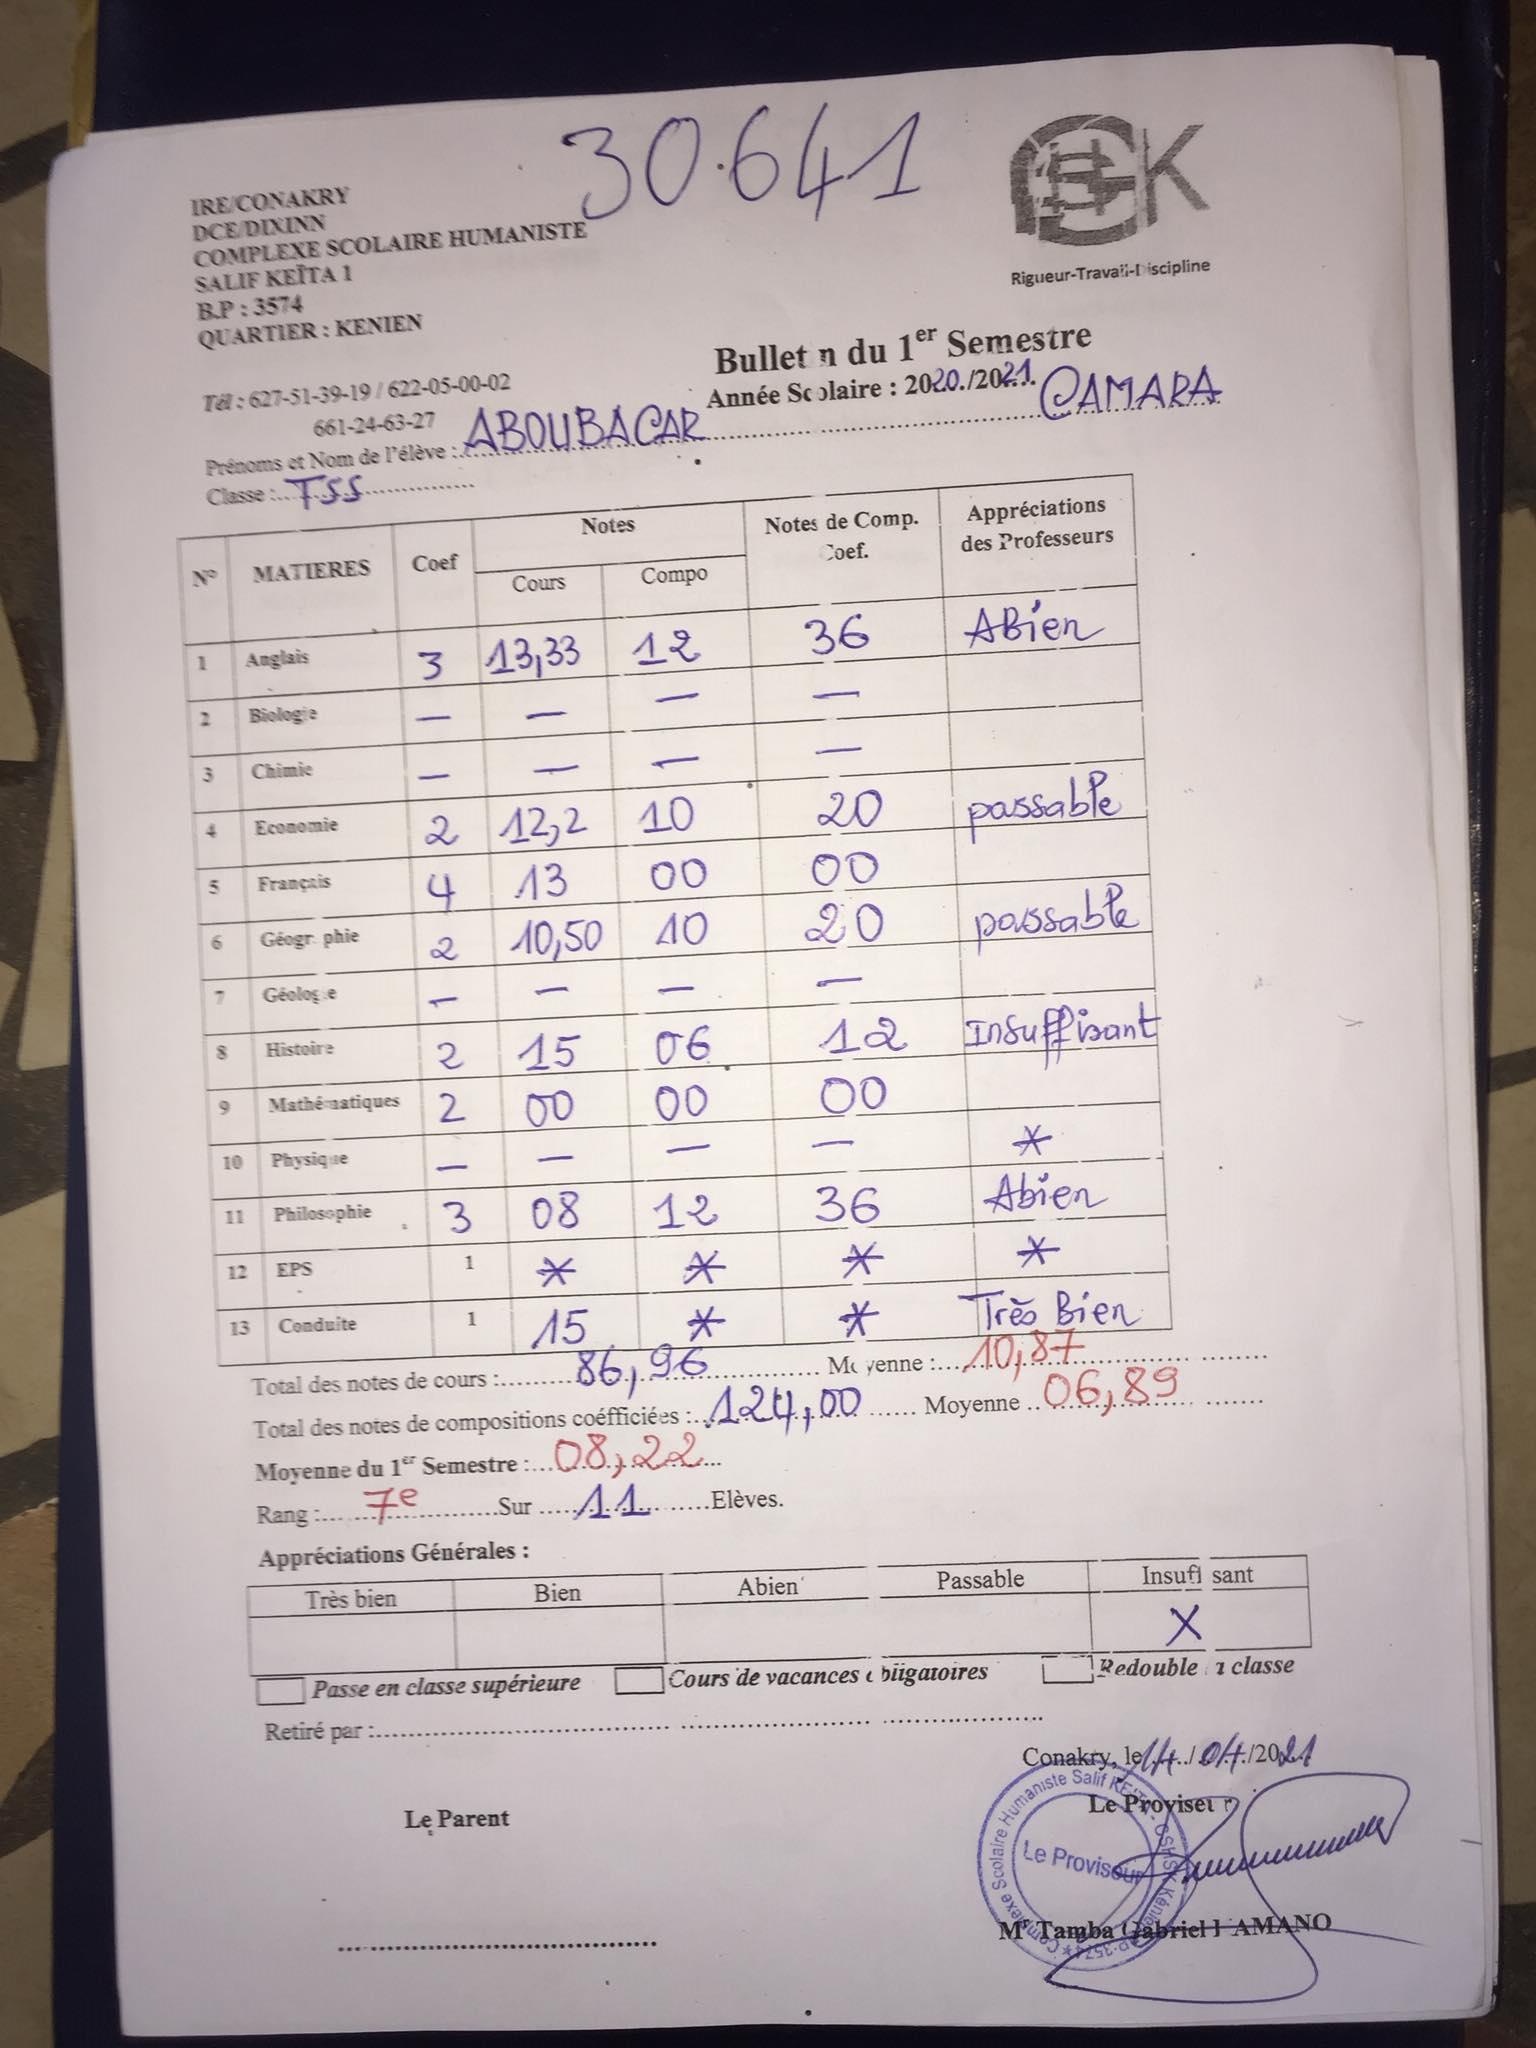 30.641
IRE/CONAKRY
DCE/DIXINN
COMPLEXE SCOLAIRE HUMANISTE
SALIF KEÏTA 1
B.P : 3574
QUARTIER : KENIEN
K
Rigueur-Travail-Discipline
Tél : 627-51-39-19 / 622-05-00-02
661-24-63-27
Bulletin du 1er Semestre
Année Scolaire : 2020./2021.
Prénoms et Nom de l'élève : ABOUBACAR CAMARA
Classe : TSS
N° MATIERES Coef Notes Notes de Comp. Coef. Appréciations des Professeurs
Cours Compo
1 Anglais 3 13,33 12 36 ABien
2 Biologie — — — —
3 Chimie — — — —
4 Economie 2 12,2 10 20 passable
5 Français 4 13 00 00
6 Géographie 2 10,50 10 20 passable
7 Géologie — — — —
8 Histoire 2 15 06 12 Insuffisant
9 Mathématiques 2 00 00 00
10 Physique — — — — *
11 Philosophie 3 08 12 36 Abien
12 EPS 1 * * * *
13 Conduite 1 15 * * Très Bien
Total des notes de cours : 86,96 Moyenne : 10,87
Total des notes de compositions coéfficiées : 124,00 Moyenne 06,89
Moyenne du 1er Semestre : 08,22
Rang : 7e Sur 11 Elèves.
Appréciations Générales :
Très bien Bien Abien Passable Insuffisant
X
Passe en classe supérieure Cours de vacances obligatoires Redouble la classe
Retiré par :
Conakry, le 14/04/2021
Le Parent Le Proviseur
Complexe Scolaire Humaniste Salif KEITA - CSHSK Kénien BP:3574
Le Proviseur
Mr Tamba Gabriel